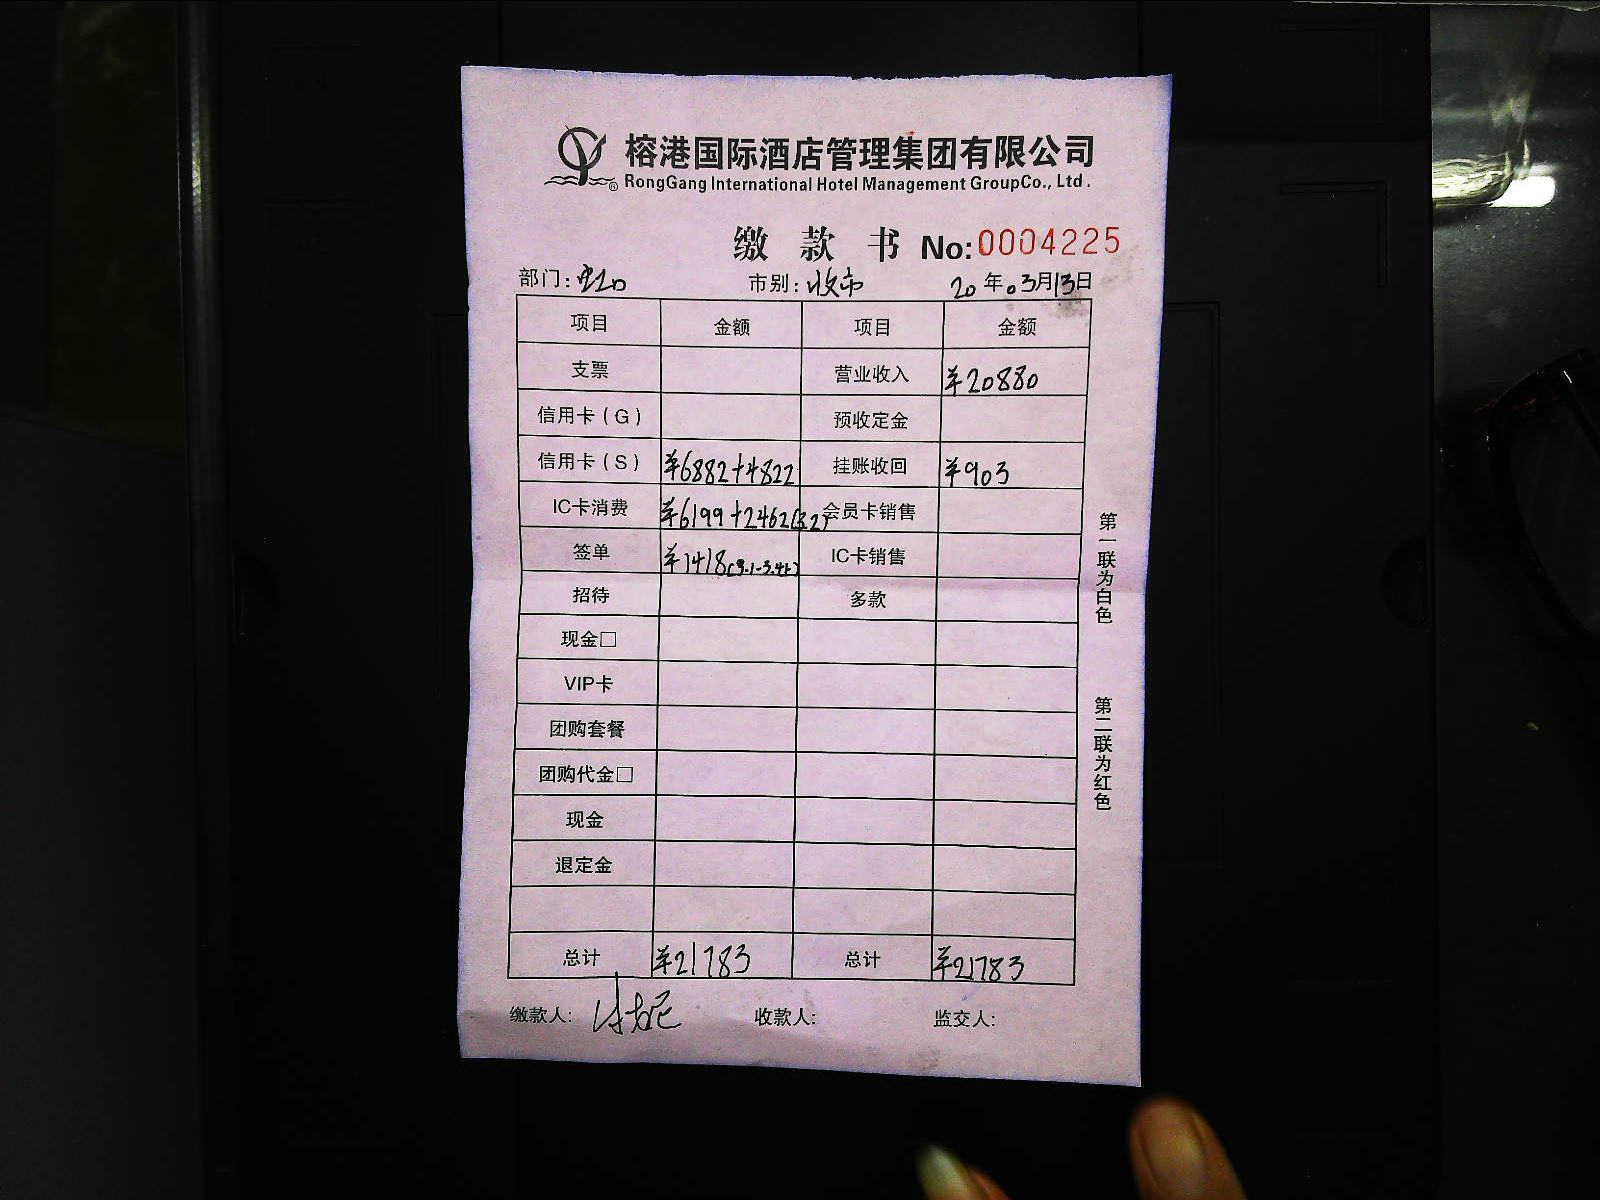 榕港国际酒店管理集团有限公司
RongGang International Hotel Management GroupCo., Ltd.
缴 款 书 No:0004225
部门: 市别:收市 20年03月13日
项目 金额 项目 金额
支票 营业收入 ¥20880
信用卡(G) 预收定金
信用卡(S) ¥6882+4822 挂账收回 ¥903
IC卡消费 ¥6199+2462(3.2) 会员卡销售
签单 ¥1418(3.1-3.4) IC卡销售
招待 多款
现金□
VIP卡
团购套餐
团购代金□
现金
退定金
总计 ¥21783 总计 ¥21783
缴款人: 收款人: 监交人:
第一联为白色
第二联为红色